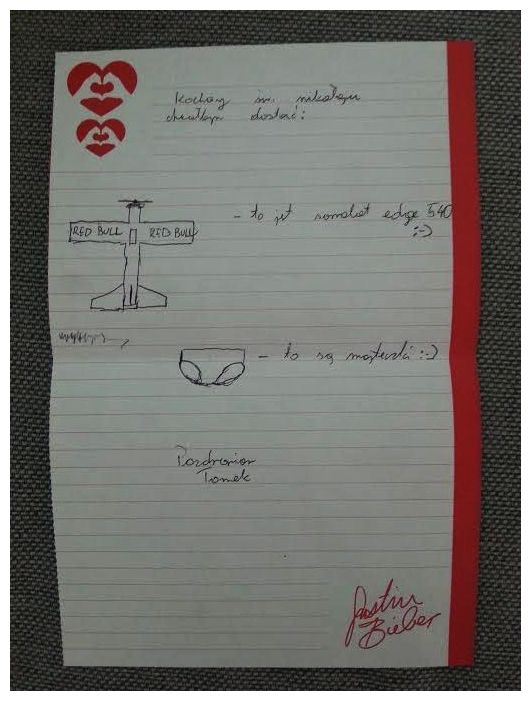 Kochany św. mikołaju
chciałbym dostać:
RED BULL RED BULL
- to jest samolot edge 540
:-)
- to są majteczki :-)
Pozdrawiam
Tomek
Justin
Bieber